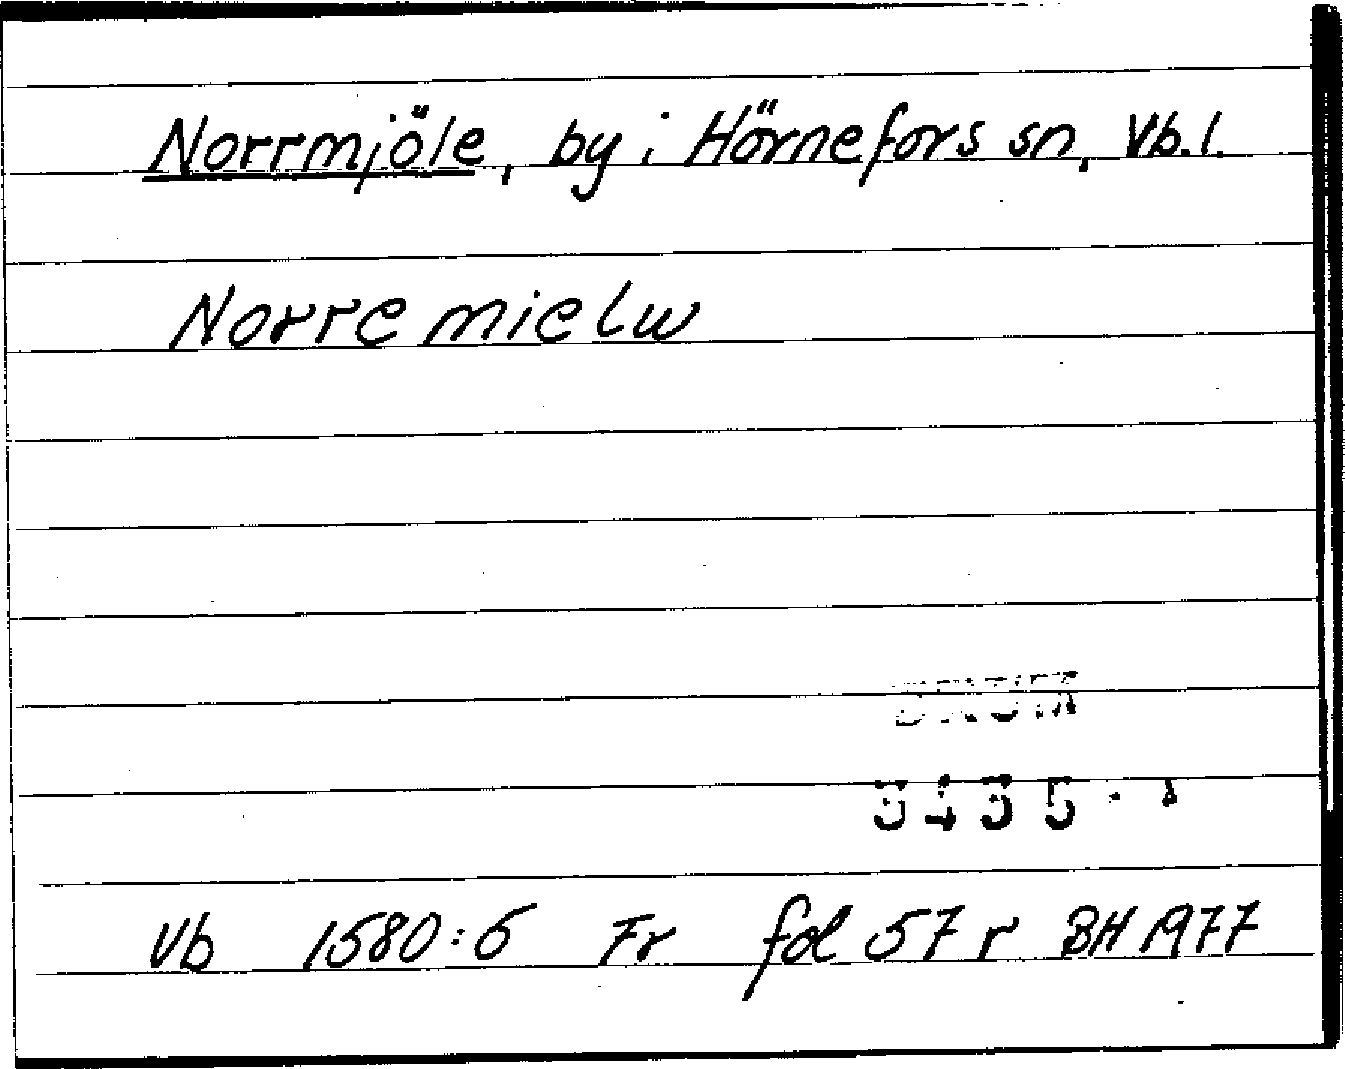 Norrmjöle, by i Hörnefors sn, Vb.l.
Norre mielw
Vb 1580:6 Fr fol 57 r BH 1977